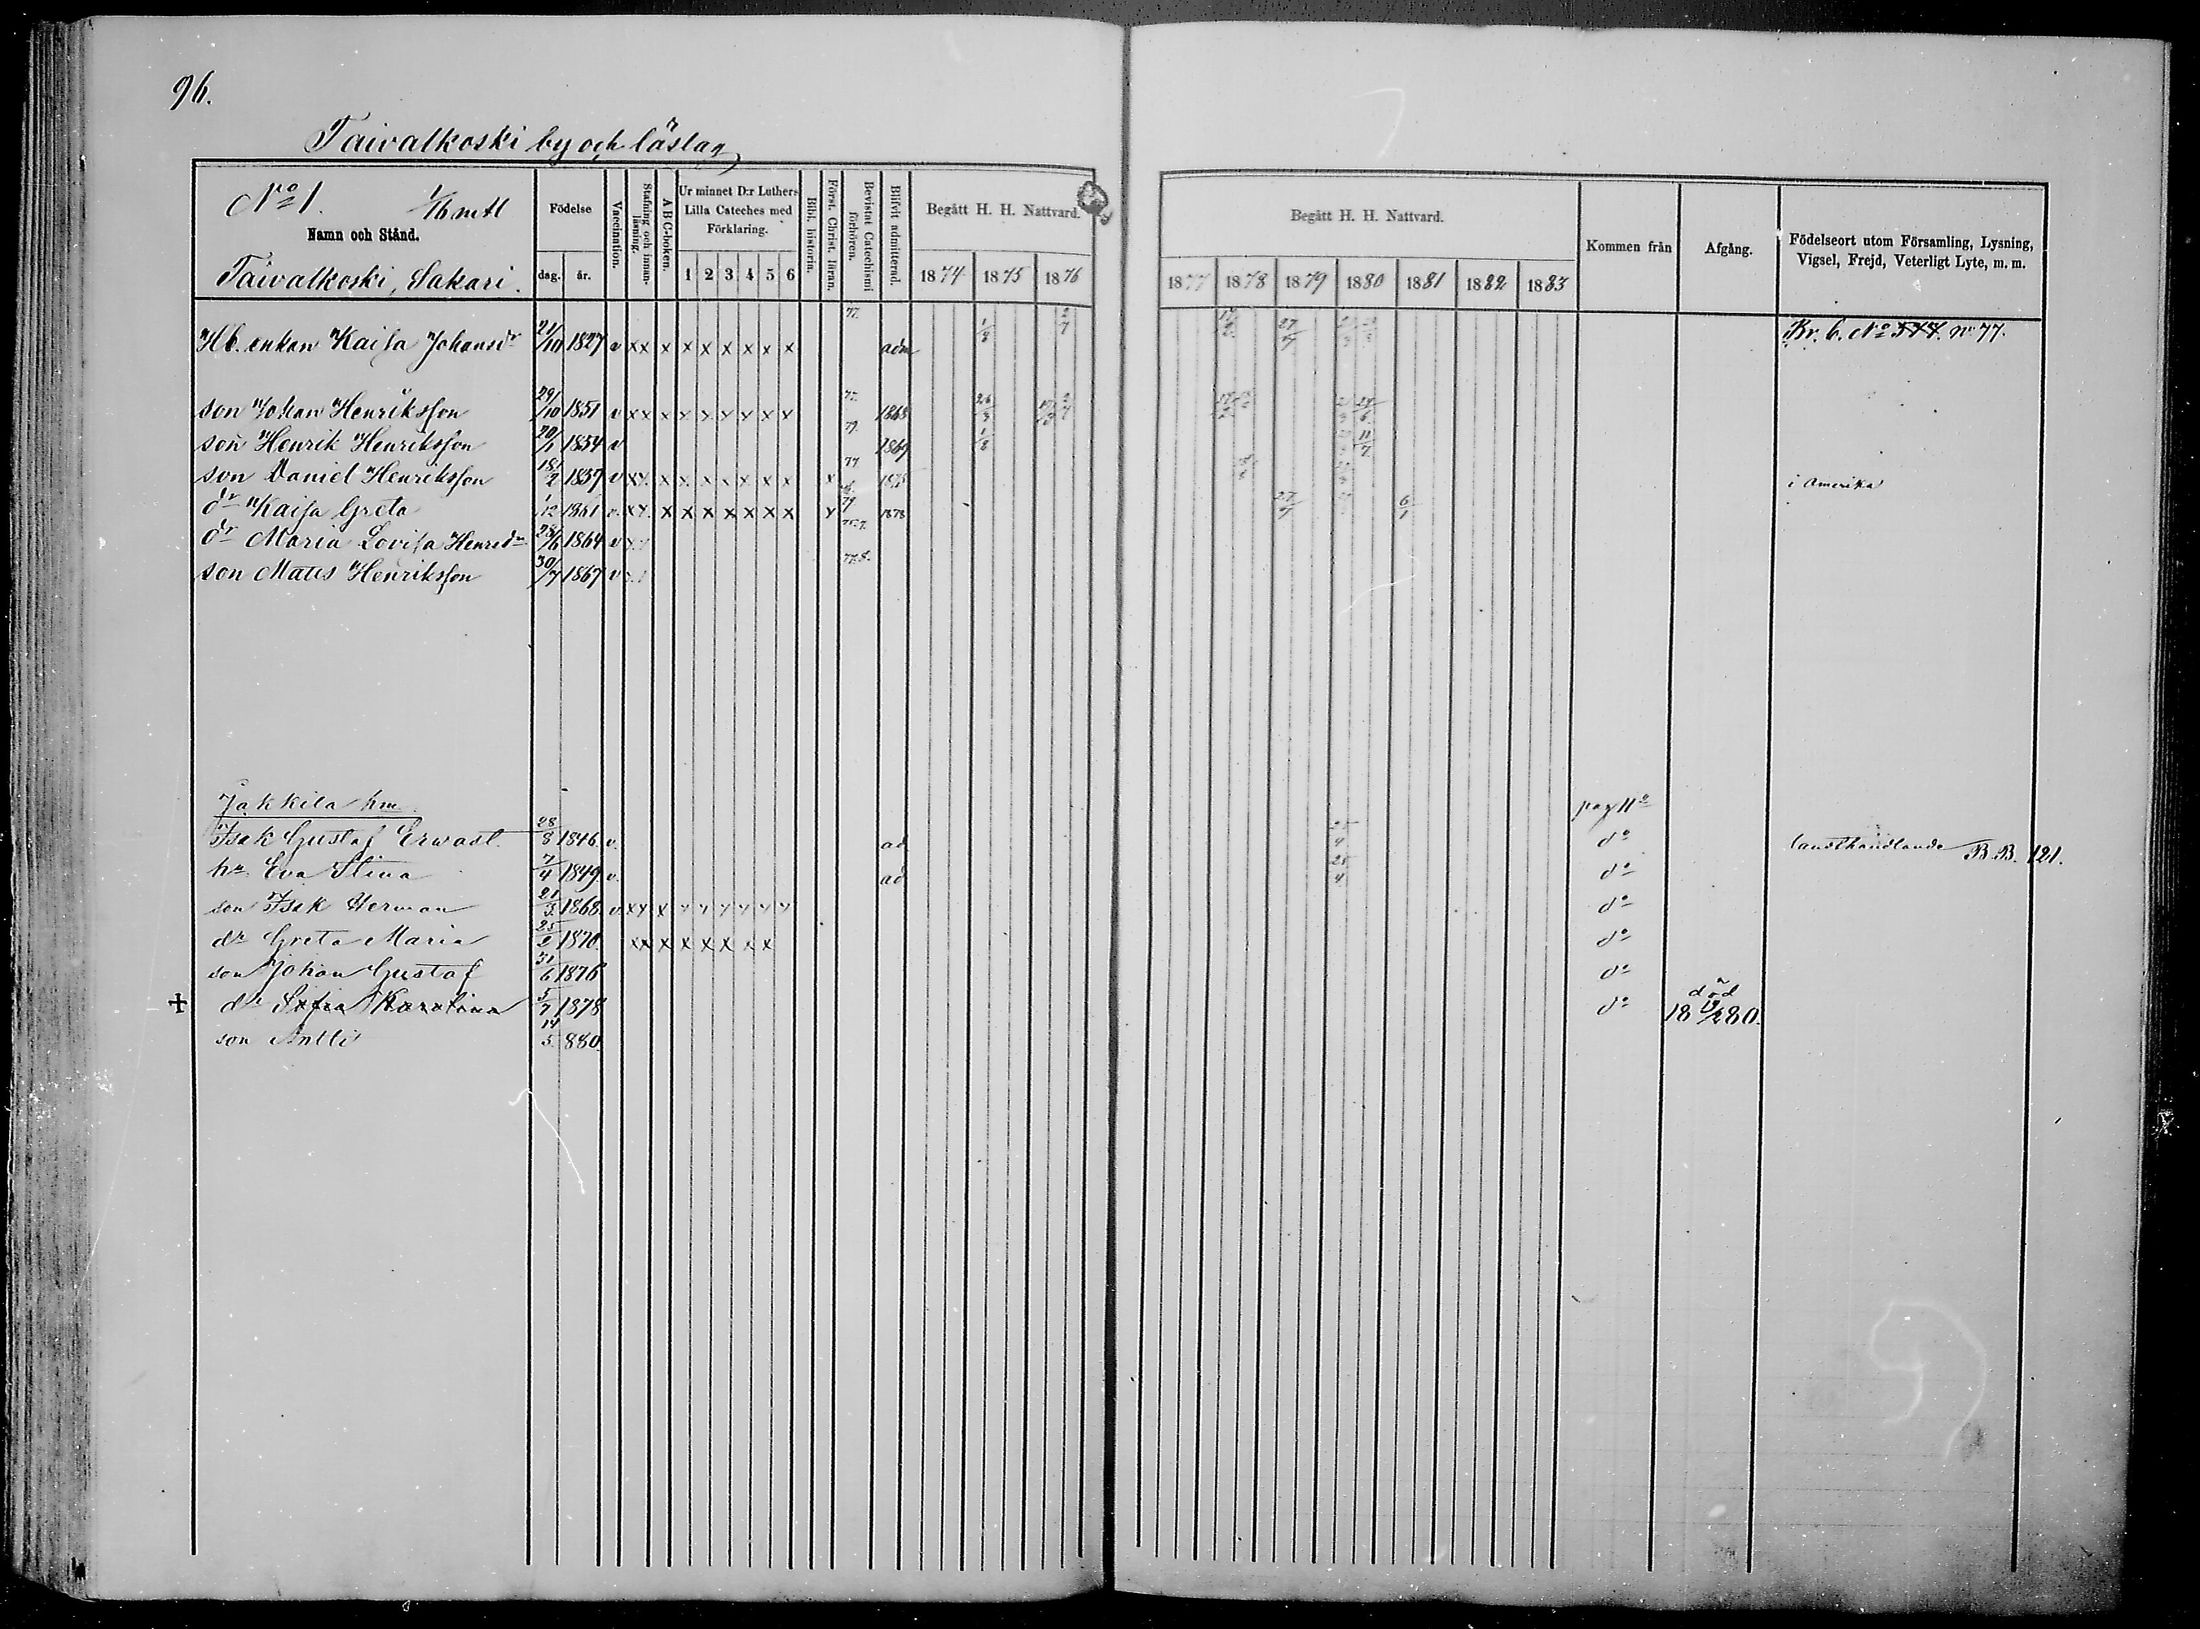 96.
Taivalkoski by och läslag
No 1. 1/6 mtl
Namn och Stånd.
Taivalkoski, Sakari.
Födelse
dag. år.
Vaccination.
Stafning och innanläsning.
A B C-boken.
Ur minnet D:r Luthers Lilla Cateches med Förklaring.
1 2 3 4 5 6
Bibl. historin.
Först. Christ. läran.
Bevistat Catechismi förhören.
Blifvit admitterad.
Begått H. H. Nattvard.
1874 1875 1876
Begått H. H. Nattvard.
1877 1878 1879 1880 1881 1882 1883
Kommen från
Afgång.
Födelseort utom Församling, Lysning, Vigsel, Frejd, Veterligt Lyte, m. m.
Hb. enkan Kaisa Johansdr 21/10 1827 v x x x x x x x x x 77. adm 1/8 2/7 27/7 Kr. b. No 544. no 77.
son Johan Henriksson 29/10 1851 v x x x x x x x x x 77. 1868 26/3 2/7 24/6
son Henrik Henriksson 20/1 1854 v 79. 1869 1/8 11/7
son Daniel Henriksson 18/2 1857 v x x x x x x x x x x 77. 1875 i Amerika
dr Kaisa Greta 1/12 1861 v. x x. x x x x x x x x 79 1878 27/7 6/1
dr Maria Lovisa Henrsdr 28/6 1864 v 75.7.
son Matts Henriksson 30/7 1867 v 77.8.
Jakkila hm. pag 110
Isak Gustaf Erwast. 28/8 1846. v. ad 25/4 do landthandlande B.B. 121.
hu Eva Stina 7/4 1849. v. ad 25/4 do
son Isak Herman 21/3 1868. v. x x x x x x x x x do
dr Greta Maria 25/2 1870. x x x x x x x x do
son Johan Gustaf 31/6 1876 do
+ dr Sofia Karolina 5/7 1878 do död 18 19/2 80.
son Antti 14/5 880.